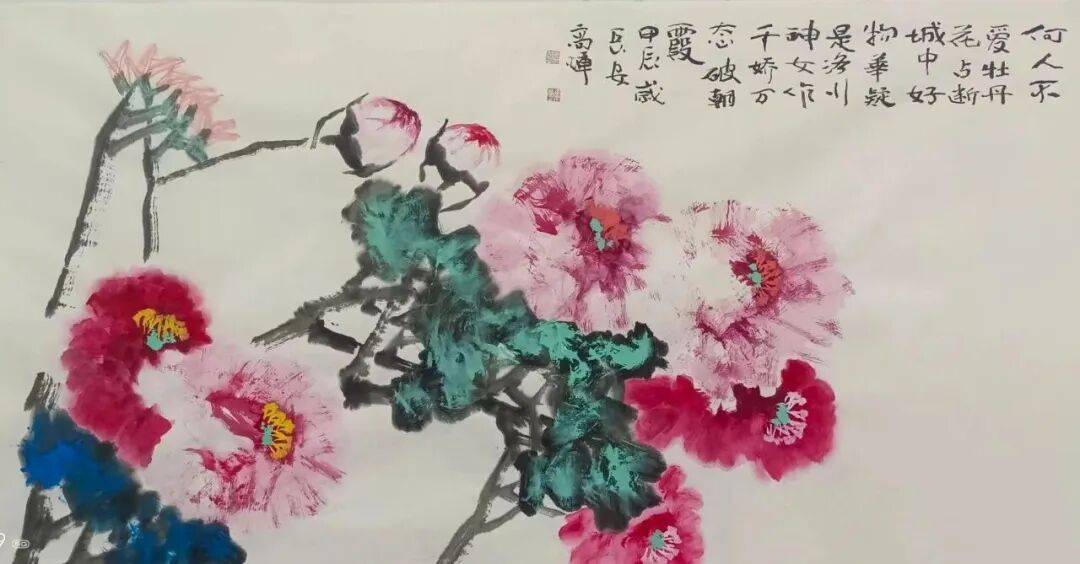 何人不
爱牡丹
花占断
城中好
物華疑
是洛川
神女作
千娇万
态破朝
霞
甲辰歲
长安
高